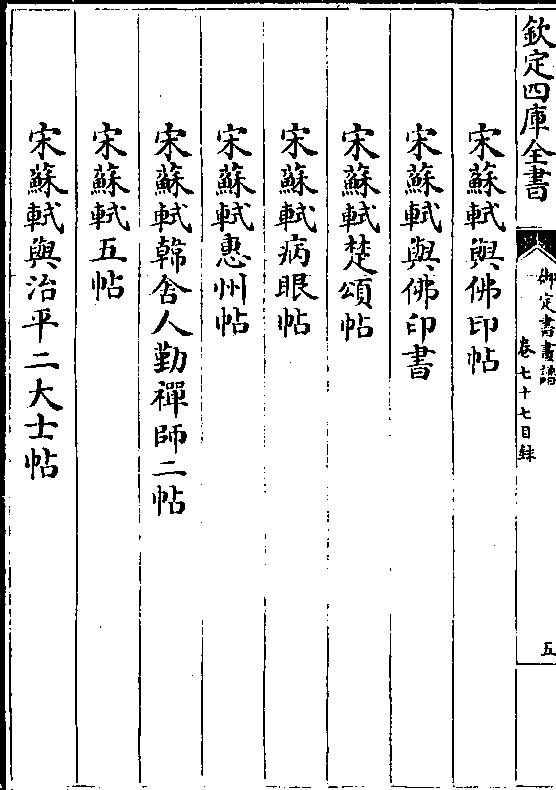 欽定四庫全書
御定書畫譜
卷七十七目録
五
宋蘇軾與佛印帖
宋蘇軾與佛印書
宋蘇軾楚頌帖
宋蘇軾病眼帖
宋蘇軾惠州帖
宋蘇軾韓舍人勤禪師二帖
宋蘇軾五帖
宋蘇軾與治平二大士帖